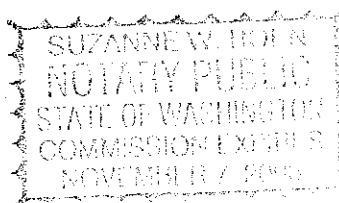 SUZANNE W.
NOTARY PUBLIC
STATE OF WASHINGTON
COMMISSION EXPIRES
NOVEMBER 7,